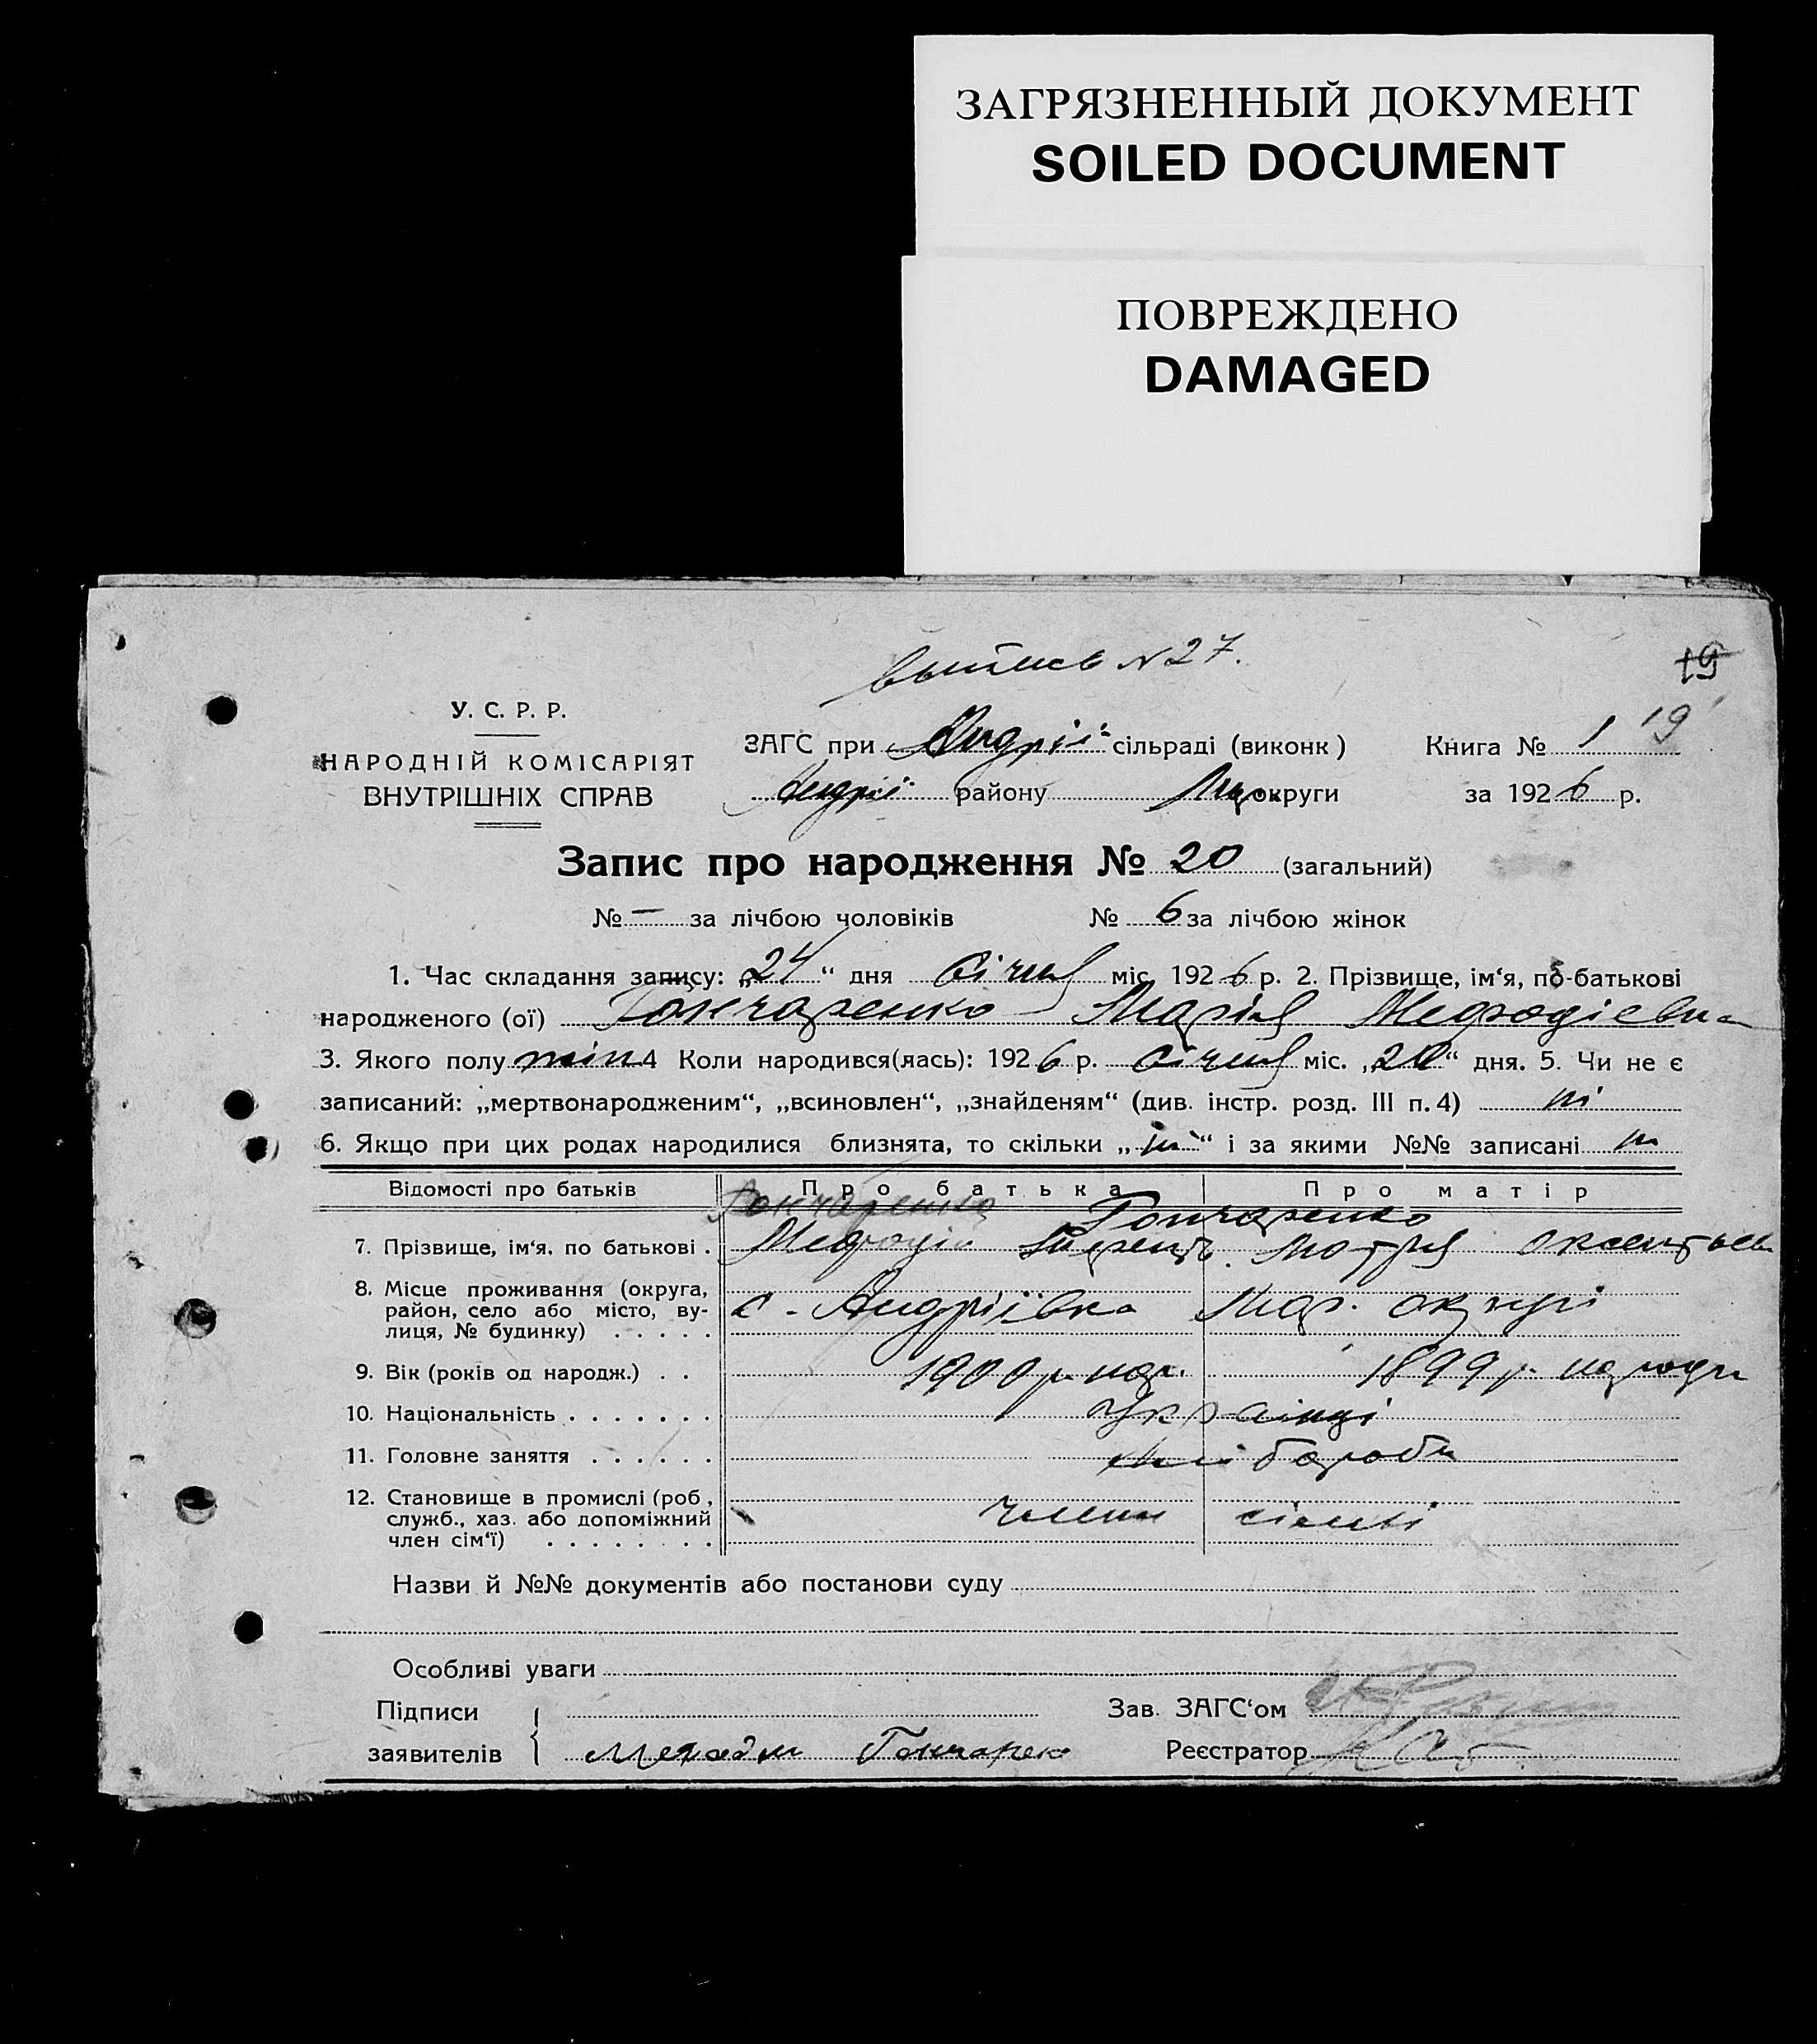 ЗАГРЯЗНЕННЫЙ ДОКУМЕНТ
SOILED DOCUMENT
ПОВРЕЖДЕНО
DAMAGED
выпись N 27.
19
У. С. Р. Р.
НАРОДНІЙ КОМІСАРІЯТ
ВНУТРІШНІХ СПРАВ
ЗАГС при Андрії сільраді (виконк) Книга № 1 19
Андрії району округи за 1926 р.
Запис про народження № 20 (загальний)
№ — за лічбою чоловіків № 6 за лічбою жінок
1. Час складання запису: „24“ дня січня міс. 1926 р. 2. Прізвище, ім‘я, по-батькові
народженого (ої) Гончаренко Марія Мефодієвна
3. Якого полу жін 4 Коли народився(лась): 1926 р. січня міс. „20“ дня. 5. Чи не є
записаний: „мертвонародженим“, „всиновлен“, „знайденям“ (див. інстр. розд. III п. 4) ні
6. Якщо при цих родах народилися близнята, то скільки „ні“ і за якими №№ записані ні
Відомості про батьків Про батька Про матір
Гончаренко Гончаренко
7. Прізвище, ім‘я, по батькові . Мефодій Мотря Оксентьев
8. Місце проживання (округа, район, село або місто, вулиця, № будинку) . . . . . с. Андріївка Мар. округи
9. Вік (років од народж.) . . 1900 р. нар. 1899 р. народж
10. Національність . . . . . . . Українці
11. Головне заняття . . . . . . хлібороби
12. Становище в промислі (роб., служб., хаз. або допоміжний член сім‘ї) . . . . . . . . члени сімьі
Назви й №№ документів або постанови суду
Особливі уваги
Підписи Зав. ЗАГС‘ом
заявителів Мефодий Гончарен Реєстратор